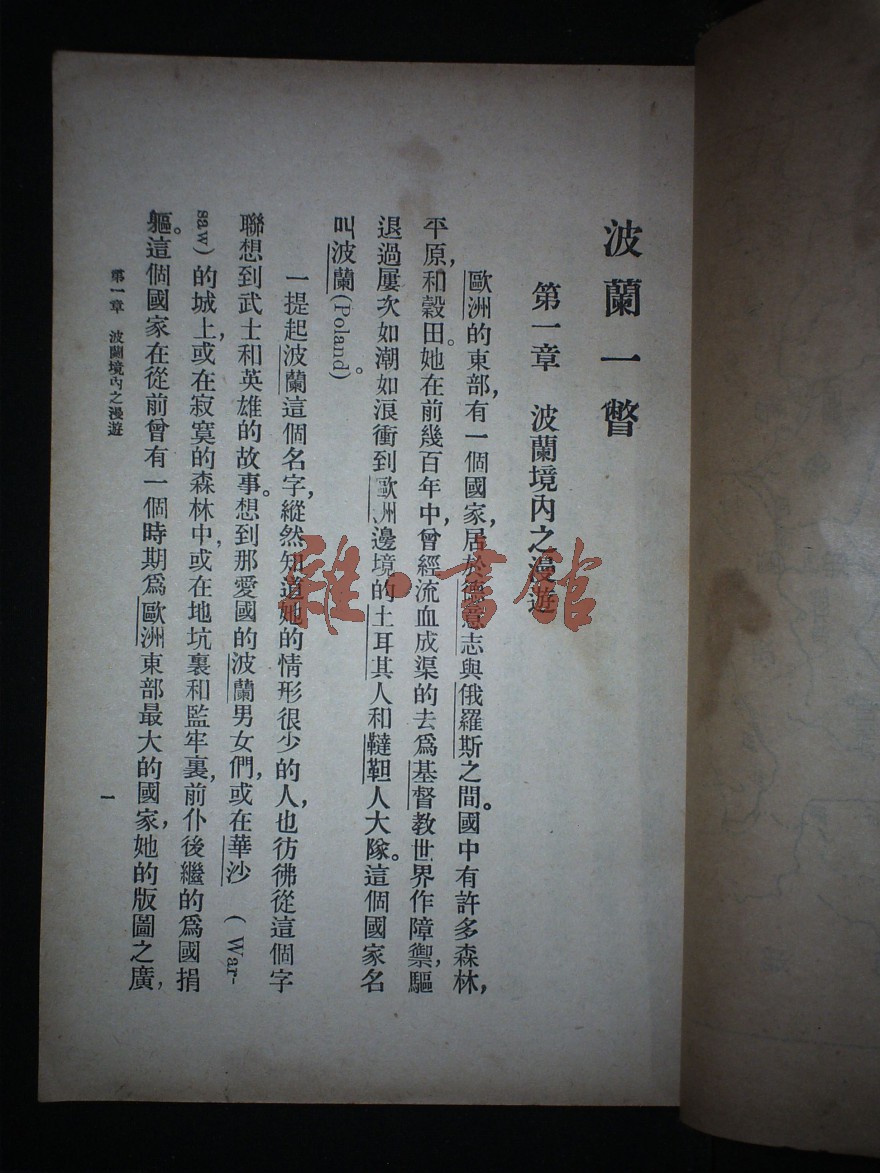 波蘭一瞥
第一章　波蘭境內之漫遊
歐洲的東部，有一個國家，居於德意志與俄羅斯之間。國中有許多森林，
平原，和穀田。她在前幾百年中，曾經流血成渠的去爲基督教世界作障禦，驅
退過屢次如潮如浪衝到歐洲邊境的土耳其人和韃靼人大隊。這個國家名
叫波蘭(Poland)。
一提起波蘭這個名字，縱然知道她的情形很少的人，也彷彿從這個字
聯想到武士和英雄的故事。想到那愛國的波蘭男女們，或在華沙（War-
saw）的城上，或在寂寞的森林中，或在地坑裏和監牢裏，前仆後繼的爲國捐
軀。這個國家在從前曾有一個時期爲歐洲東部最大的國家，她的版圖之廣，
第一章　波蘭境內之漫遊
一
雜·書館